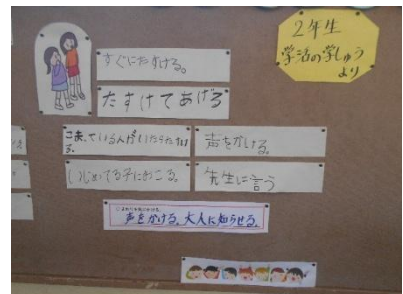 2年生
学活の学しゅう
より
すぐにたすける。
たすけてあげる
こまっている人がいたらたすけ
る。
声をかける。
いじめてる子におこる。
先生に言う
声をかける。大人に知らせる。